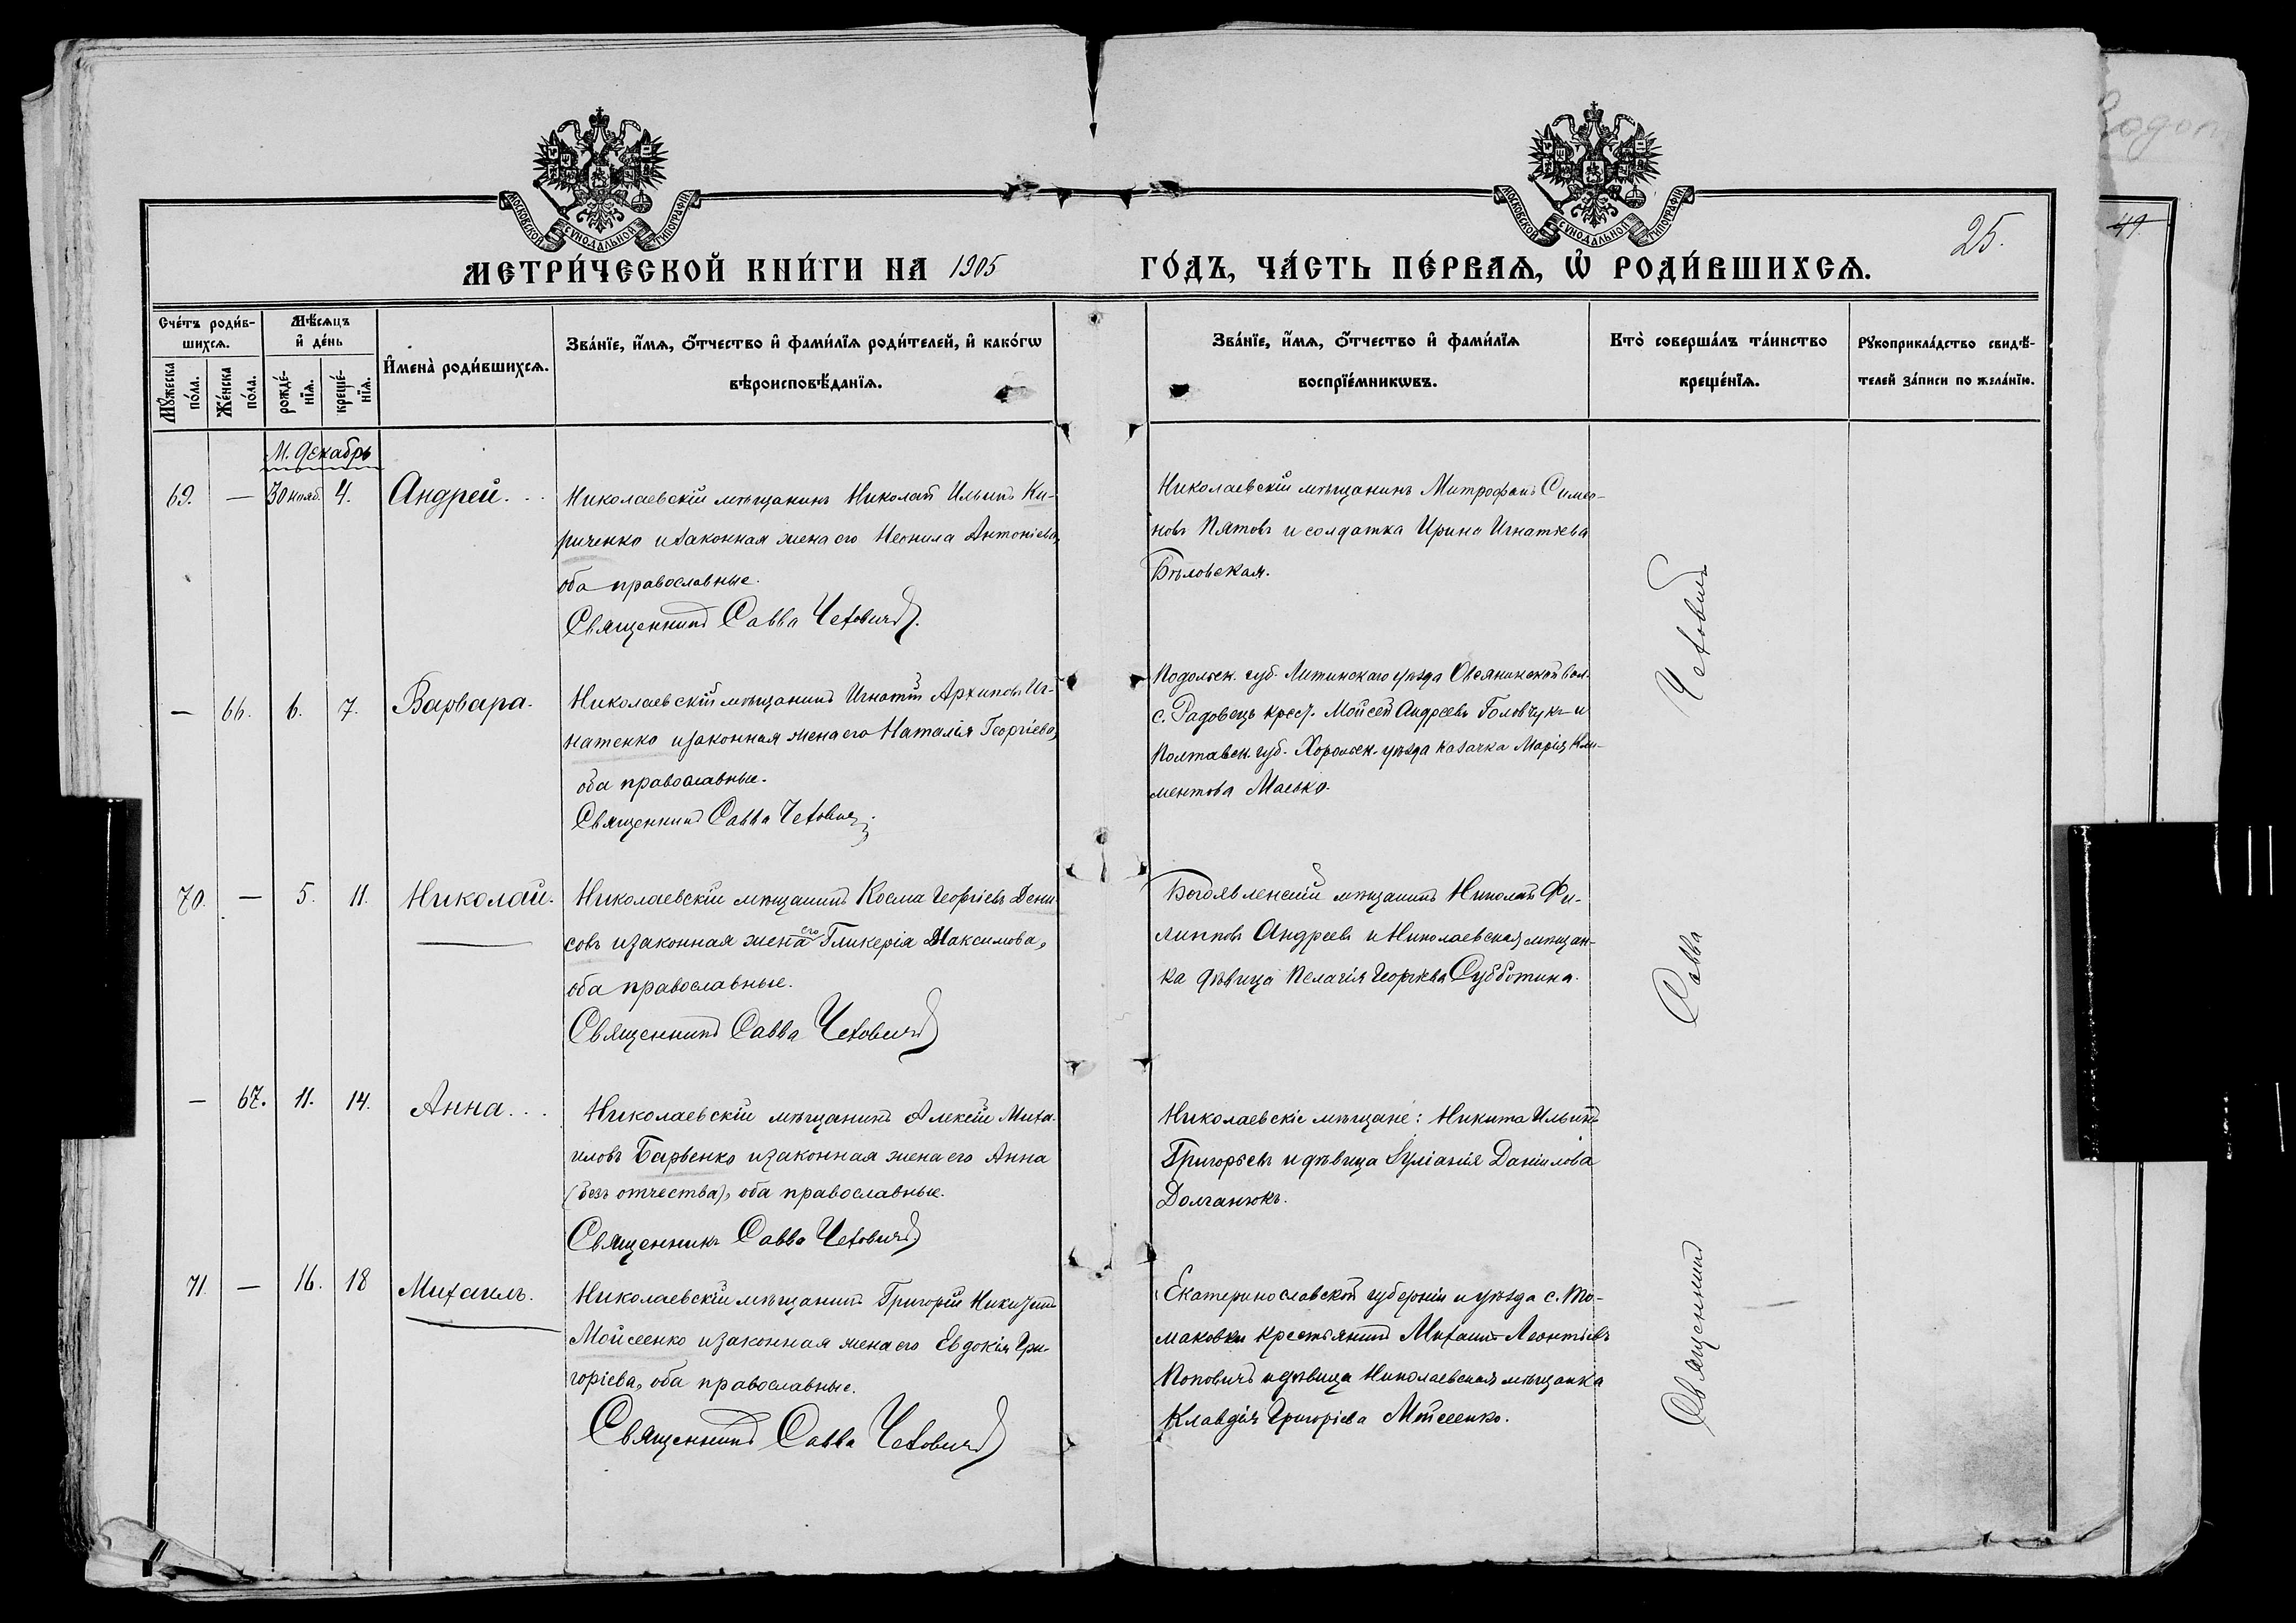 МОСКОВСКОЙ СѴНОДАЛЬНОЙ ТИПОГРАФІИ
МОСКОВСКОЙ СѴНОДАЛЬНОЙ ТИПОГРАФІИ
25.
МЕТРИ́ЧЕСКОЙ КНИ́ГИ НА 1905 ГО́ДЪ, ЧА́СТЬ ПЕ́РВАѦ, Ѽ РОДИ́ВШИХСѦ.
49.
Сче́тъ роди́в-
шихсѧ.
Мѣ́сѧцъ
и҆ де́нь
Мꙋ́жеска по́ла.
Же́нска по́ла.
рожде́-
нїѧ.
креще́-
нїѧ.
И҆мена̀ роди́вшихсѧ.
Зва́нїе, и҆́мѧ, ѻ҆́тчество и҆ фами́лїѧ роди́телей, и҆ како́гѡ
вѣроисповѣ́данїѧ.
Зва́нїе, и҆́мѧ, ѻ҆́тчество и҆ фами́лїѧ
воспрїе́мникѡвъ.
Кто̀ соверша́лъ та́инство
креще́нїѧ.
Рꙋкоприкла́дство свидѣ́-
телей за́писи по жела́нїю.
М. Декабрь
69. — 30 нояб. 4. Андрей.
Николаевскій мѣщанинъ Николай Ильинъ Ки-
риченко и законная жена его Неонила Антоніева,
оба православные.
Священникъ Савва Чеховичъ.
Николаевскій мѣщанинъ Митрофанъ Симео-
новъ Пятовъ и солдатка Ирина Игнатіева
Бѣловская.
— 66. 6. 7. Варвара.
Николаевскій мѣщанинъ Игнатій Архиповъ Иг-
натенко и законная жена его Наталія Георгіева,
оба православные.
Священникъ Савва Чеховичъ
Подольск. губ. Литинскаго уѣзда вол.
с. Радовецъ крест. Мойсей Андреевъ Головчукъ и
Полтавск. губ. Хорольск. уѣзда казачка Марія Кли-
ментова Масько.
70. — 5. 11. Николай.
Николаевскій мѣщанинъ Косма Георгіевъ Дени-
совъ и законная жена его Гликерія Максимова,
оба православные.
Священникъ Савва Чеховичъ
Богоявленскій мѣщанинъ Николай Фи-
липповъ Андреевъ и Николаевская мѣщан-
ка дѣвица Пелагія Георгіева Субботина.
— 67. 11. 14. Анна.
Николаевскій мѣщанинъ Алексій Миха-
иловъ Барвенко и законная жена его Анна
(безъ отчества), оба православные.
Священникъ Савва Чеховичъ
Николаевскіе мѣщане: Никита Ильинъ
Григорьевъ и дѣвица Іуліанія Даніилова
Долганюкъ.
71. — 16. 18 Михаилъ.
Николаевскій мѣщанинъ Григорій
Мойсеенко и законная жена его Евдокія Гри-
горіева, оба православные.
Священникъ Савва Чеховичъ
Екатеринославской губерніи и уѣзда с. То-
маковки крестьянинъ Михаилъ Леонтіевъ
Поповичъ и дѣвица Николаевская мѣщанка
Клавдія Григоріева Мойсеенко.
Священникъ Савва Чеховичъ